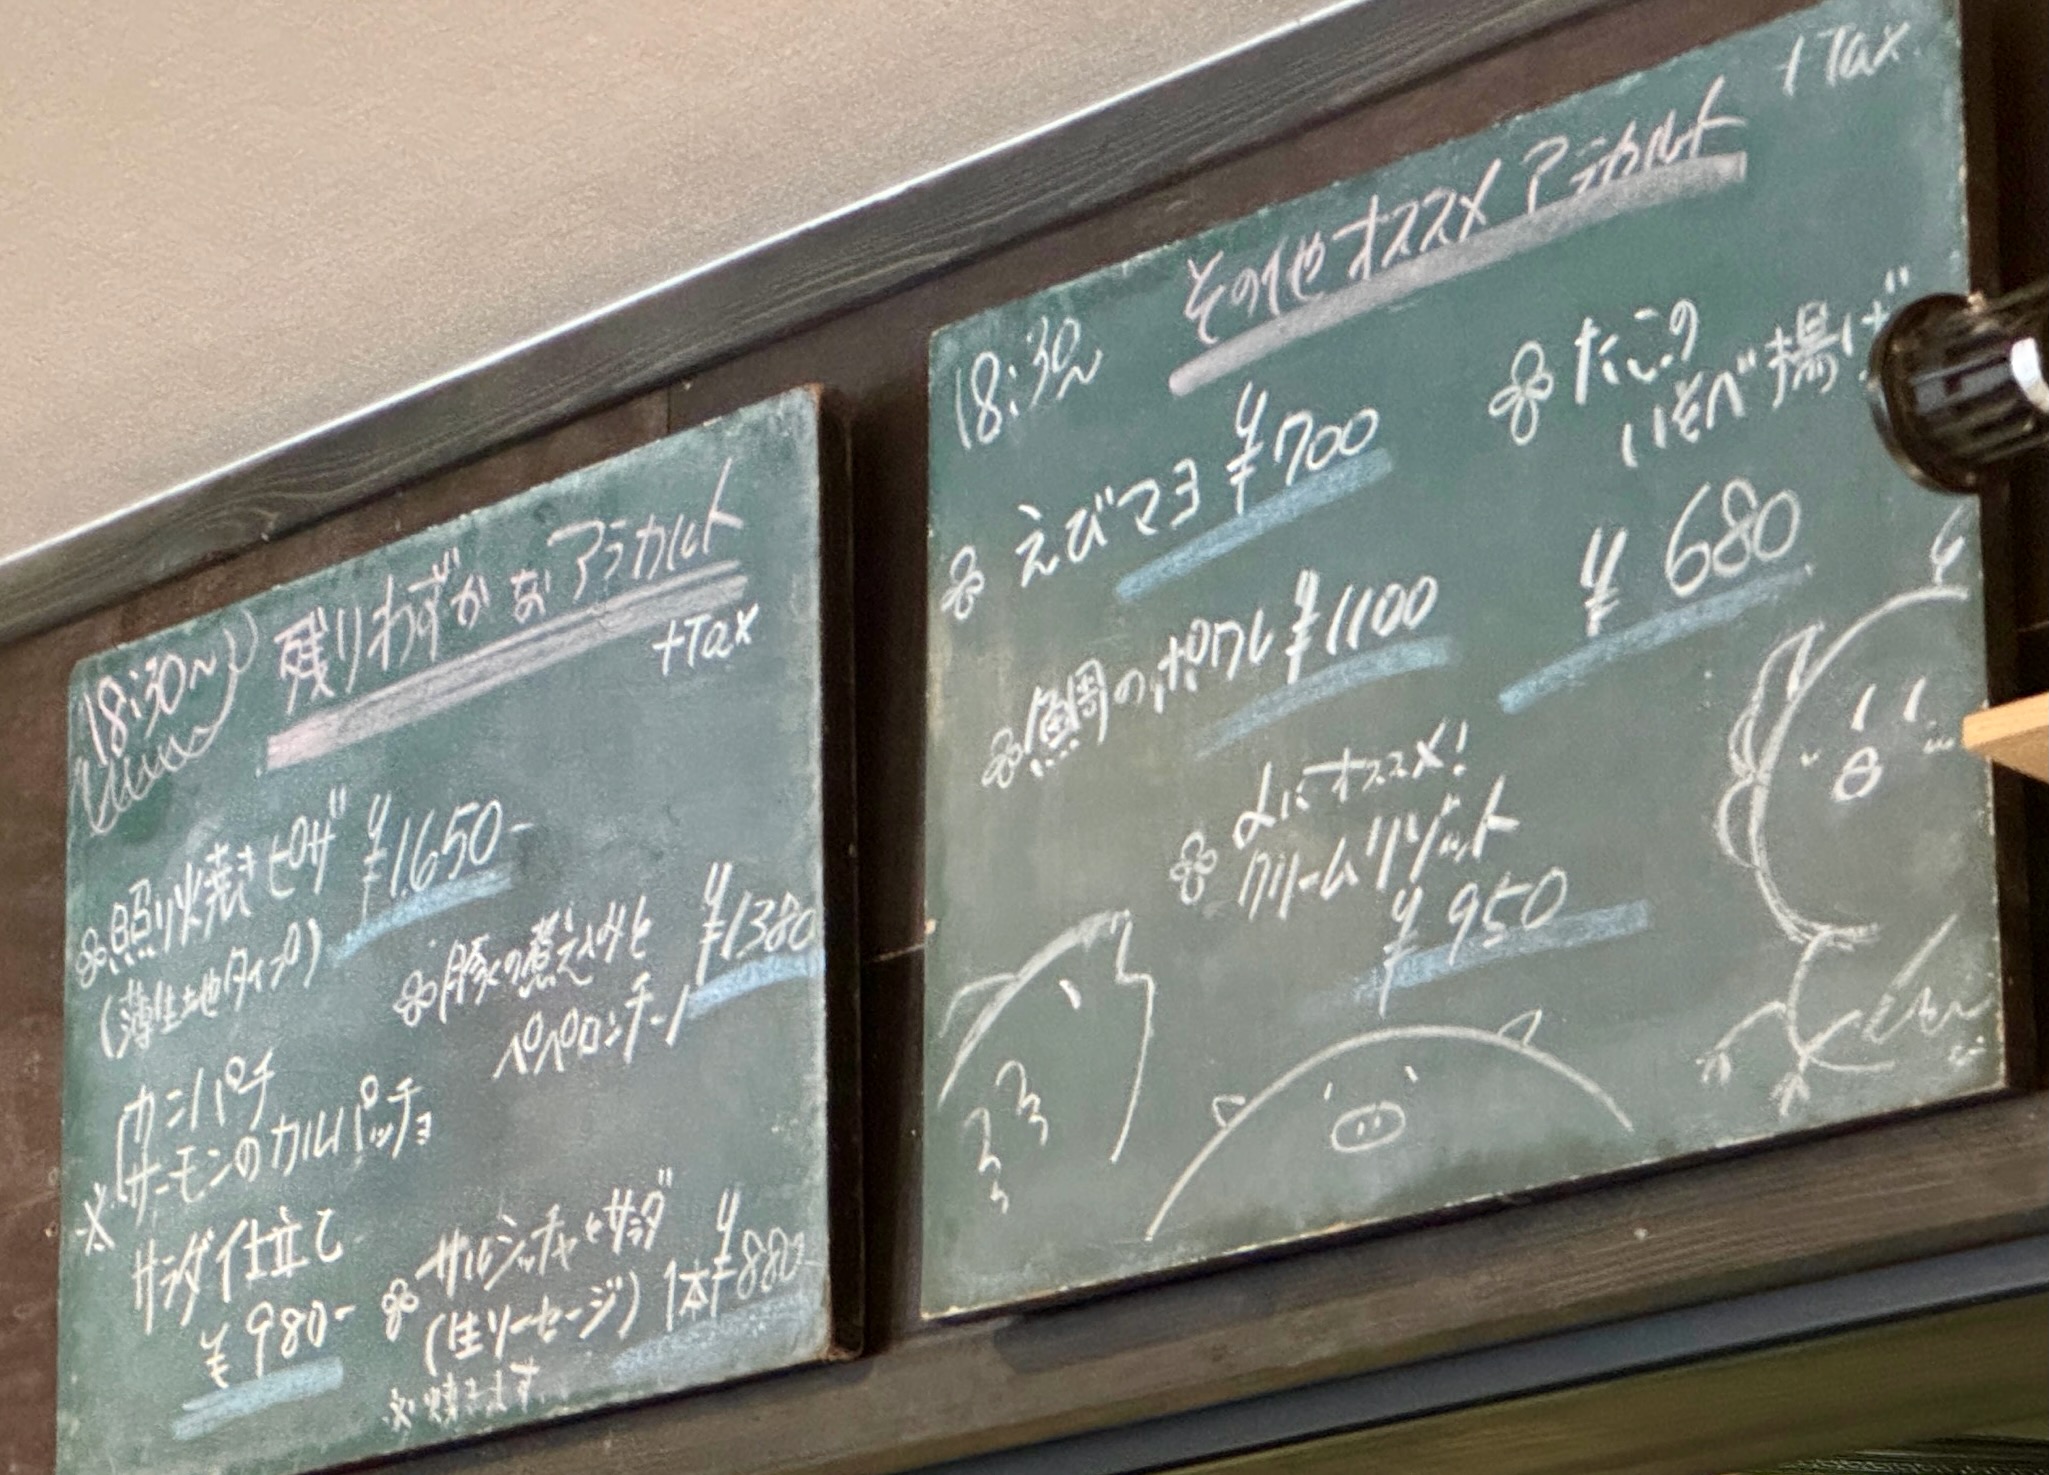 18:30〜
残りわずかなアラカルト
+Tax
照り焼きピザ ¥1,650-
(薄生地タイプ)
豚の煮込みと ¥1380
ペペロンチーノ
カンパチ
サーモンのカルパッチョ
※
サラダ仕立て
¥980-
サルシッチャとサラダ
(生ソーセージ) 1本¥880-
※焼きます
+Tax
その他オススメアラカルト
18:30〜
えびマヨ ¥700
たこの
いそべ揚げ
¥680
鯛のポワレ ¥1100
よにオススメ!
クリームリゾット
¥950